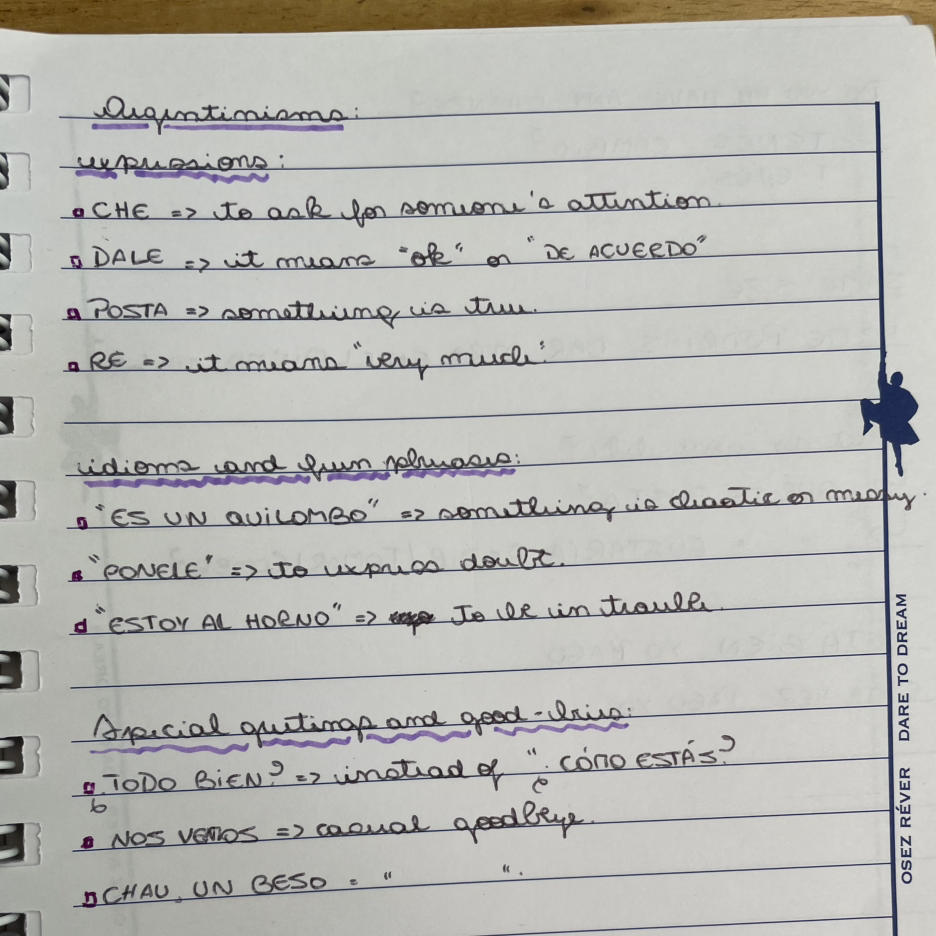 Argentinisms:
expressions:
CHE => to ask for someone's attention.
DALE => it means "ok" or "DE ACUERDO"
POSTA => something is true.
RE => it means "very much".
idioms and fun phrases:
"ES UN QUILOMBO" => something is chaotic or messy.
"PONELE" => to express doubt.
"ESTOY AL HORNO" => To be in trouble.
Special greetings and good-byes:
¿TODO BIEN? => instead of "¿CÓMO ESTÁS?
NOS VEMOS => casual goodbye.
CHAU, UN BESO = " ".
OSEZ RÉVER DARE TO DREAM